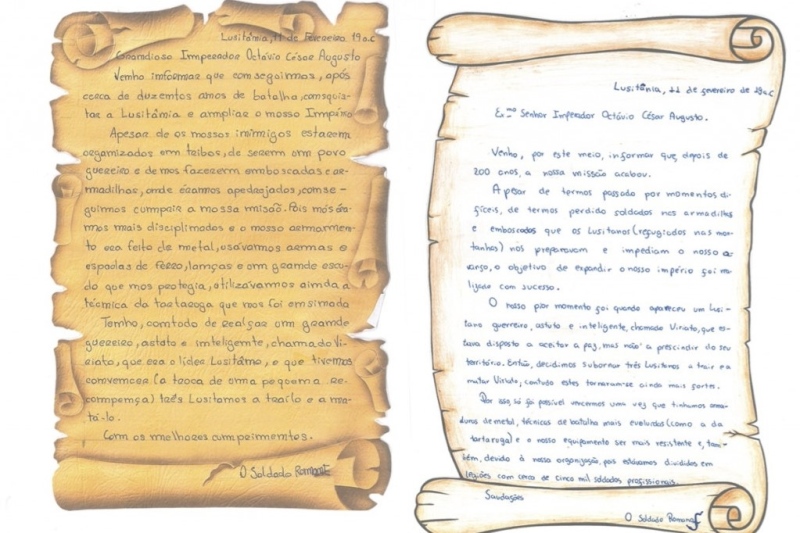 Lusitânia, 11 de fevereiro 19 a.C
Grandioso Imperador Octávio César Augusto
Venho informar que conseguimos, após
cerca de duzentos anos de batalha, conquis-
tar a Lusitânia e ampliar o nosso Império
Apesar de os nossos inimigos estarem
organizados em tribos, de serem um povo
guerreiro e de nos fazerem emboscadas e ar-
madilhas, onde éramos apedrejados, conse-
guimos cumprir a nossa missão. Pois nós éra-
mos mais disciplinados e o nosso armamen-
to era feito de metal, usávamos armas e
espadas de ferro, lanças e um grande escu-
do que nos protegia, utilizávamos ainda a
técnica da tartaruga que nos foi ensinada
Tenho, contudo de realçar um grande
guerreiro, astuto e inteligente, chamado Vi-
riato, que era o líder Lusitano, e que tivemos
convencer (a troca de uma pequena re-
compença) três Lusitanos a traílo e a ma-
tá-lo.
Com os melhores cumprimentos.
O Soldado Romano
Lusitânia, 11 de fevereiro de 19 a.C
Ex.mo Senhor Imperador Octávio César Augusto.
Venho, por este meio, informar que, depois de
200 anos, a nossa missão acabou.
Apesar de termos passado por momentos di-
fíceis, de termos perdido soldados nas armadilhas
e emboscadas que os Lusitanos (refugiados nas mon-
tanhas) nos preparavam e impediam o nosso a-
vanço, o objetivo de expandir o nosso império foi rea-
lizado com sucesso.
O nosso pior momento foi quando apareceu um Lusi-
tano guerreiro, astuto e inteligente, chamado Viriato, que es-
tava disposto a aceitar a paz, mas não a prescindir do seu
território. Então, decidimos subornar três Lusitanos a trair e a
matar Viriato, contudo estes tornaram-se ainda mais fortes.
Por isso, só foi possível vencermos uma vez que tínhamos arma-
duras de metal, técnicas de batalha mais evoluídas (como a da
tartaruga) e o nosso equipamento ser mais resistente e, tam-
bém, devido à nossa organização, pois estávamos divididos em
legiões com cerca de cinco mil soldados profissionais.
Saudações
O Soldado Romano